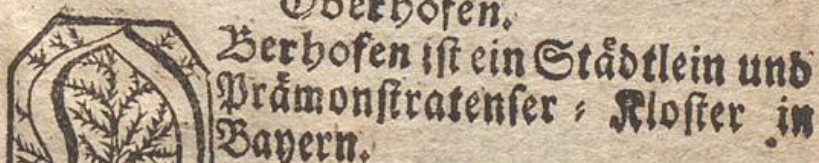 Oberhofen.
OBerhofen iſt ein Städtlein und
Prämonſtratenſer ⸗ Kloſter in
Bayern.